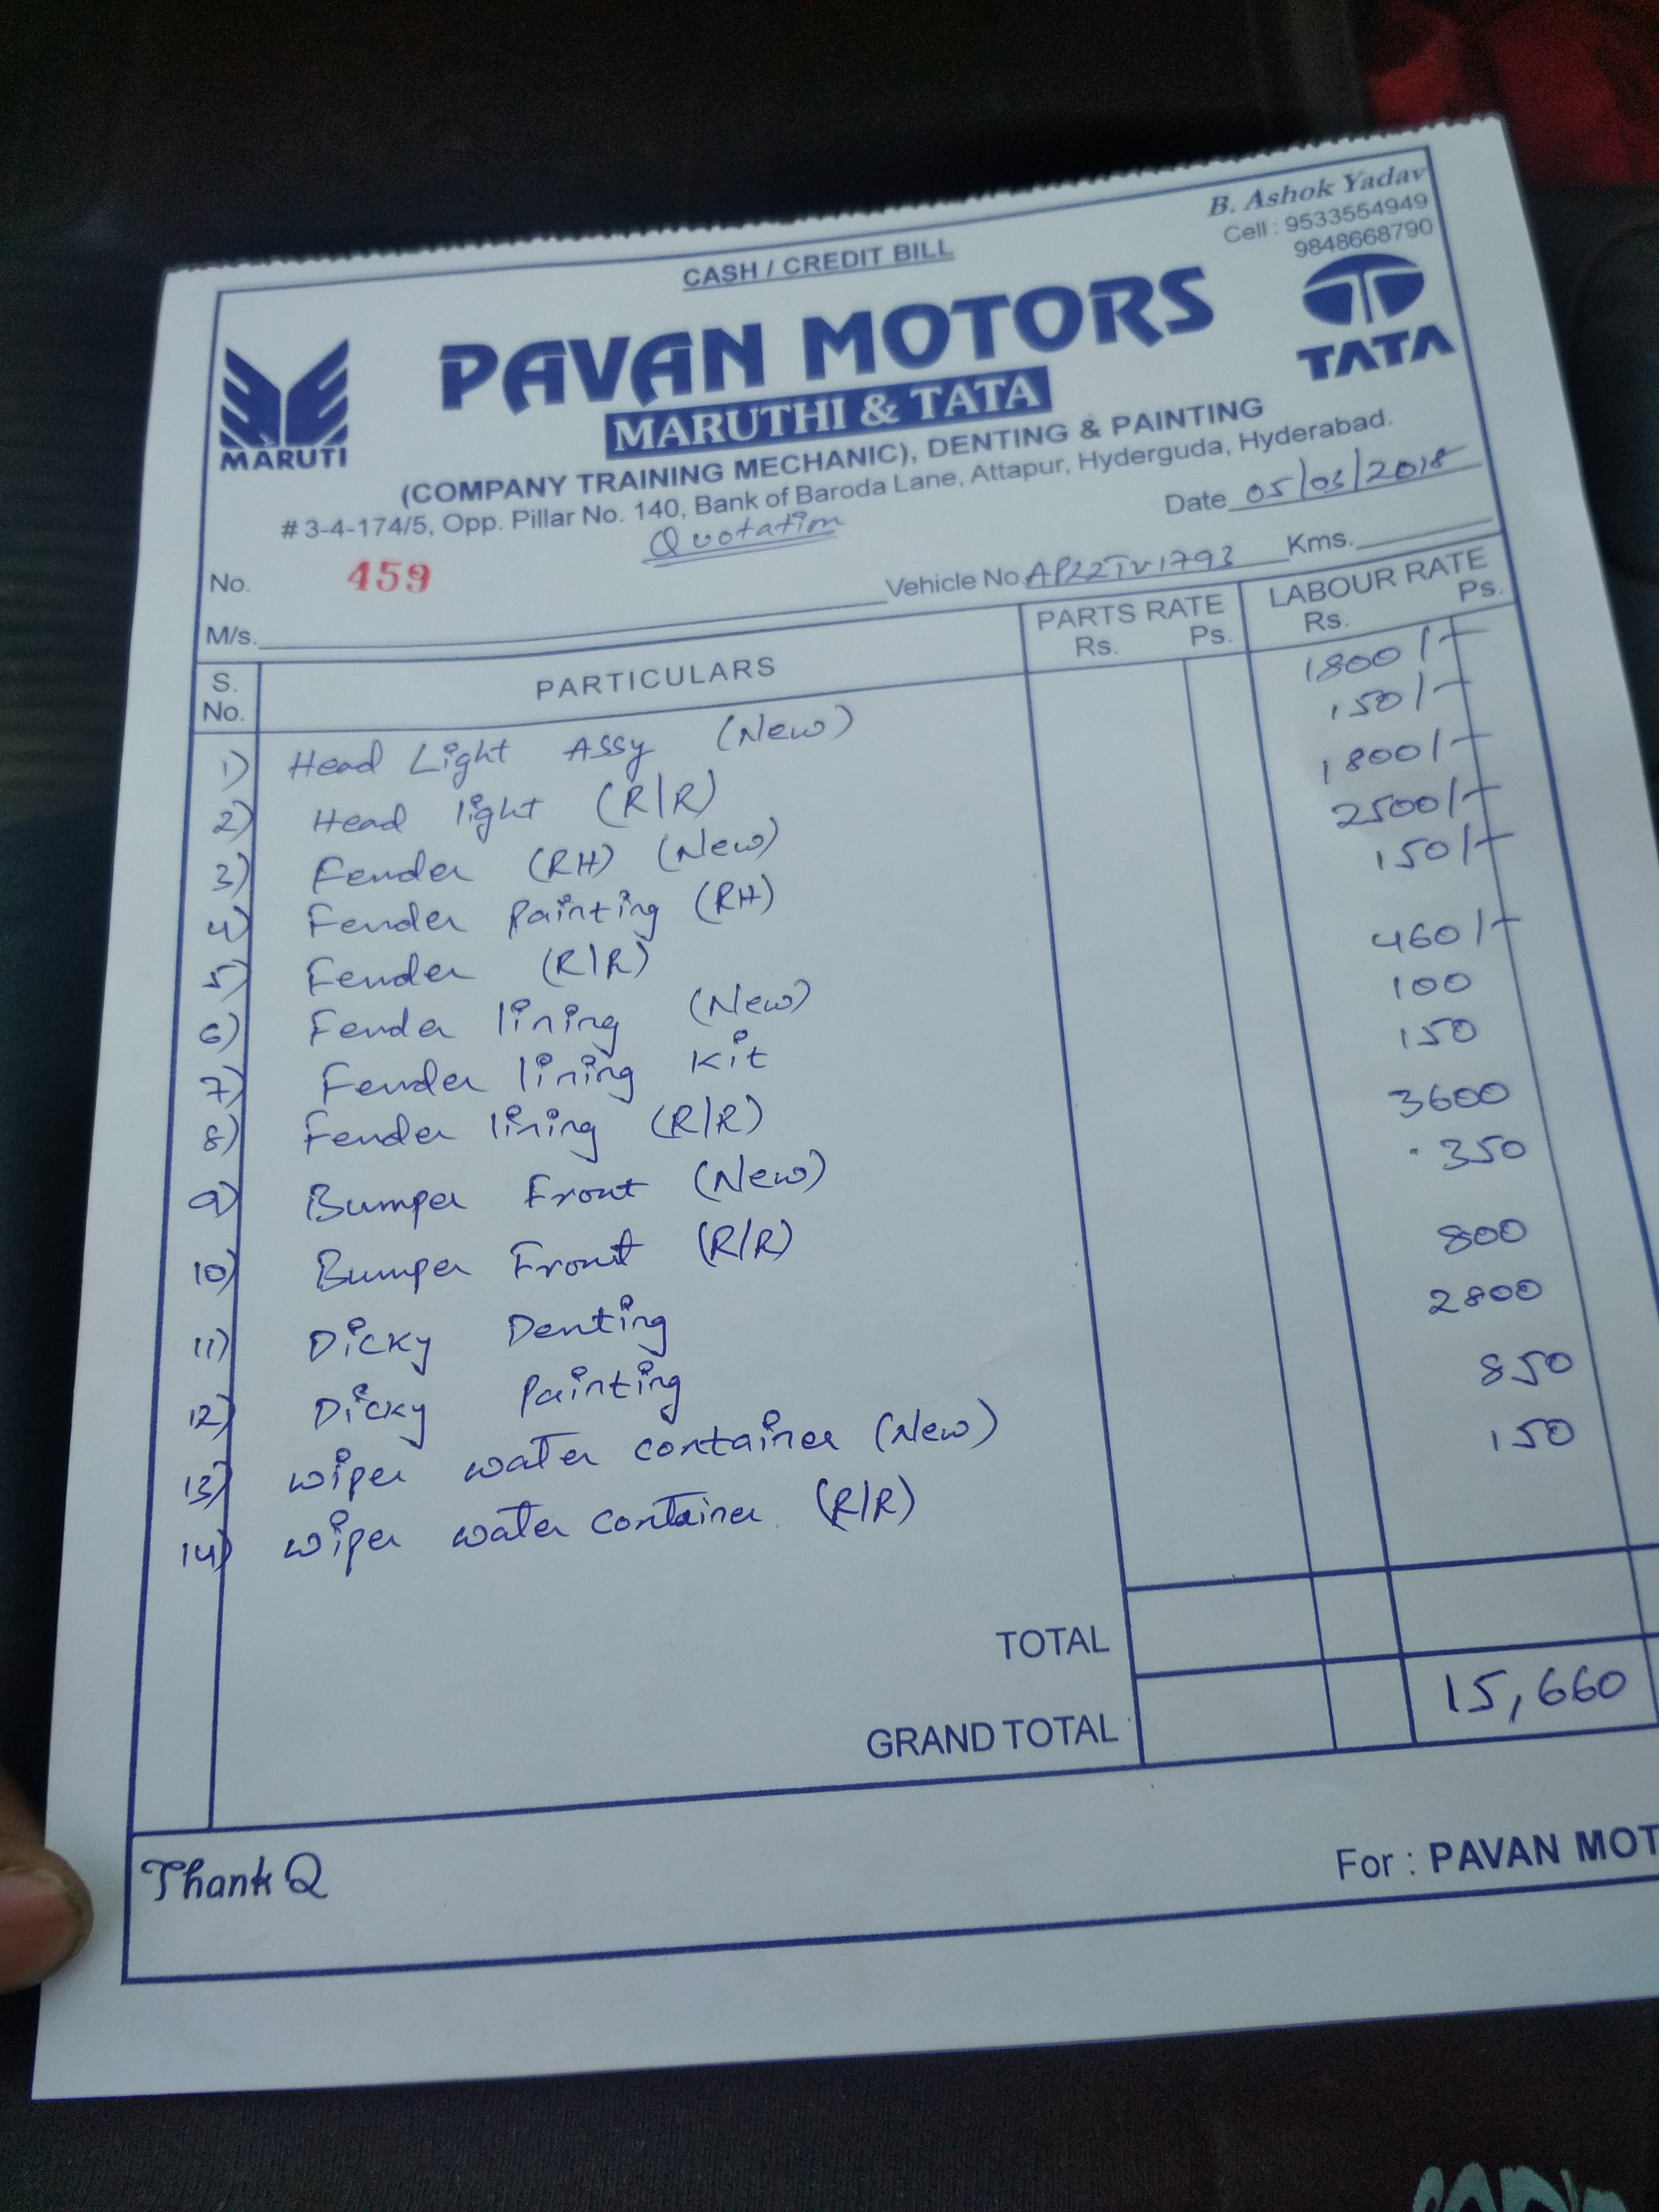 B. Ashok Yadav
CASH / CREDIT BILL
Cell : 9533554949
9848668790
MARUTI
PAVAN MOTORS
TATA
MARUTHI & TATA
(COMPANY TRAINING MECHANIC), DENTING & PAINTING
# 3-4-174/5, Opp. Pillar No. 140, Bank of Baroda Lane, Attapur, Hyderguda, Hyderabad.
Quotation
Date 05/03/2018
No. 459
Vehicle No. AP22TV1793 Kms.
M/s.
S. No. PARTICULARS PARTS RATE Rs. Ps. LABOUR RATE Rs. Ps.
1) Head Light Assy (New) 1800/-
2) Head light (R/R) 150/-
3) Fender (RH) (New) 1800/-
4) Fender Painting (RH) 2500/-
5) Fender (R/R) 150/-
6) Fender lining (New) 460/-
7) Fender lining Kit 100
8) Fender lining (R/R) 150
9) Bumper Front (New) 3600
10) Bumper Front (R/R) 350
11) Dicky Denting 800
12) Dicky Painting 2800
13) wiper water container (New) 850
14) wiper water container (R/R) 150
TOTAL
GRAND TOTAL 15,660
Thank Q
For : PAVAN MOT